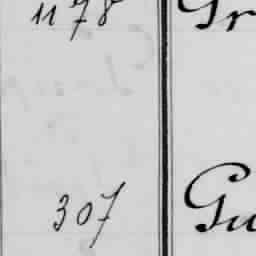 1178 Gr
307 Gu